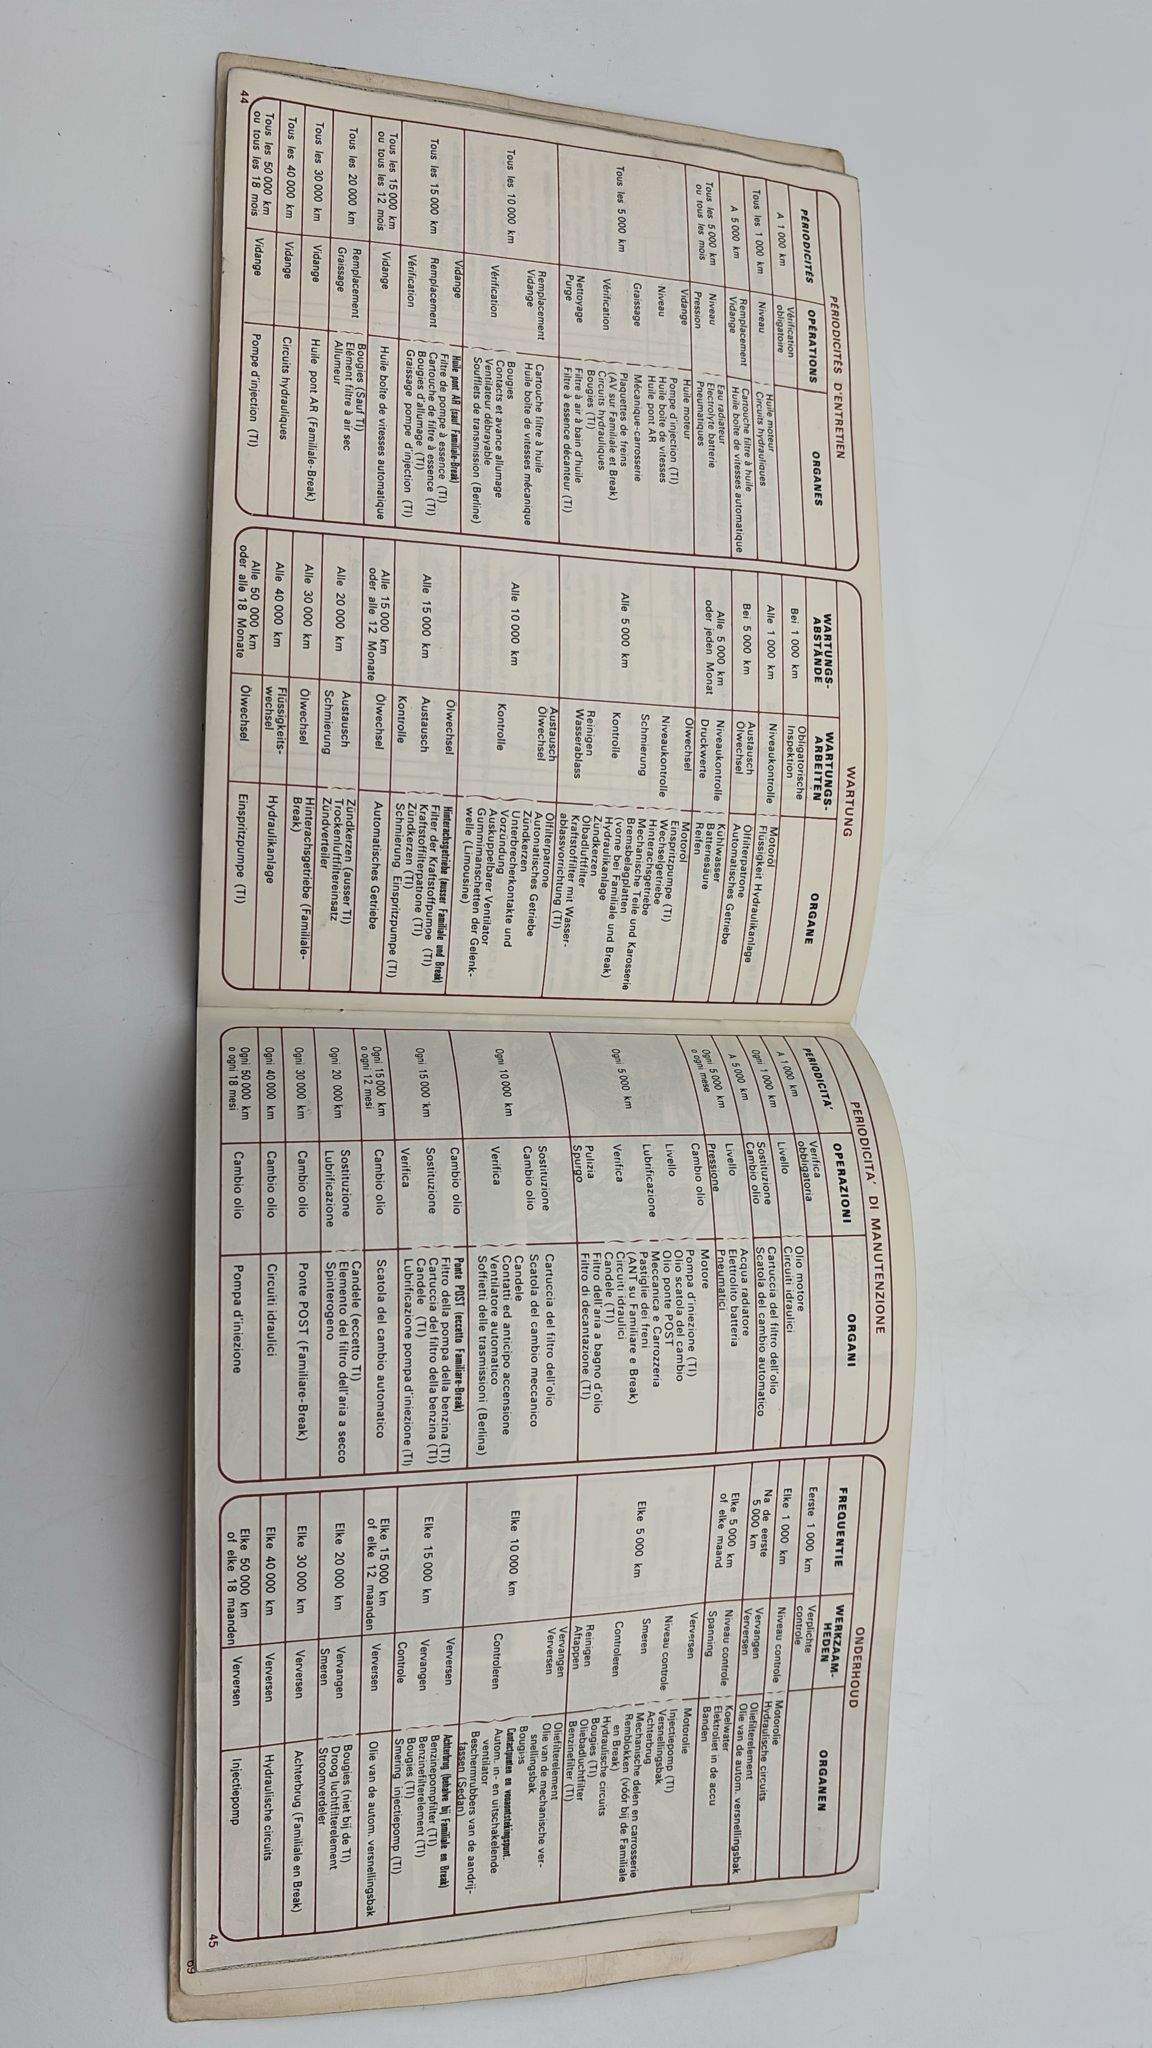 PÉRIODICITÉS D'ENTRETIEN
PÉRIODICITÉS OPÉRATIONS ORGANES
A 1 000 km Vérification
obligatoire
Tous les 1 000 km Niveau Huile moteur
Circuits hydrauliques
A 5 000 km Remplacement Cartouche filtre à huile
Vidange Huile boîte de vitesses automatique
Tous les 5 000 km Niveau Eau radiateur
ou tous les mois Electrolyte batterie
Pression Pneumatiques
Tous les 5 000 km Vidange Huile moteur
Niveau Pompe d'injection (TI)
Huile boîte de vitesses
Huile pont AR
Graissage Mécanique-carrosserie
Vérification Plaquettes de freins
(AV sur Familiale et Break)
Circuits hydrauliques
Bougies (TI)
Nettoyage Filtre à air à bain d'huile
Purge Filtre à essence décanteur (TI)
Tous les 10 000 km Remplacement Cartouche filtre à huile
Vidange Huile boîte de vitesses mécanique
Vérification Bougies
Contacts et avance allumage
Ventilateur débrayable
Soufflets de transmission (Berline)
Tous les 15 000 km Vidange Huile pont AR (sauf Familiale-Break)
Remplacement Filtre de pompe à essence (TI)
Cartouche de filtre à essence (TI)
Vérification Bougies d'allumage (TI)
Graissage pompe d'injection (TI)
Tous les 15 000 km
ou tous les 12 mois Vidange Huile boîte de vitesses automatique
Tous les 20 000 km Remplacement Bougies (Sauf TI)
Elément filtre à air sec
Graissage Allumeur
Tous les 30 000 km Vidange Huile pont AR (Familiale-Break)
Tous les 40 000 km Vidange Circuits hydrauliques
Tous les 50 000 km
ou tous les 18 mois Vidange Pompe d'injection (TI)
44
WARTUNG
WARTUNGS-
ABSTÄNDE WARTUNGS-
ARBEITEN ORGANE
Bei 1 000 km Obligatorische
Inspektion
Alle 1 000 km Niveaukontrolle Motoröl
Flüssigkeit Hydraulikanlage
Bei 5 000 km Austausch Ölfilterpatrone
Ölwechsel Automatisches Getriebe
Alle 5 000 km Niveaukontrolle Kühlwasser
oder jeden Monat Batteriesäure
Druckwerte Reifen
Alle 5 000 km Ölwechsel Motoröl
Niveaukontrolle Einspritzpumpe (TI)
Wechselgetriebe
Hinterachsgetriebe
Schmierung Mechanische Teile und Karosserie
Kontrolle Bremsbelagplatten
(vorne bei Familiale und Break)
Hydraulikanlage
Zündkerzen
Reinigen Ölbadluftfilter
Wasserablass Kraftstoffilter mit Wasser-
ablassvorrichtung (TI)
Alle 10 000 km Austausch Ölfilterpatrone
Ölwechsel Automatisches Getriebe
Kontrolle Zündkerzen
Unterbrecherkontakte und
Vorzündung
Auskuppelbarer Ventilator
Gummimanschetten der Gelenk-
welle (Limousine)
Alle 15 000 km Ölwechsel Hinterachsgetriebe (ausser Familiale und Break)
Austausch Filter der Kraftstoffpumpe (TI)
Kraftstoffilterpattone (TI)
Kontrolle Zündkerzen (TI)
Schmierung Einspritzpumpe (TI)
Alle 15 000 km
oder alle 12 Monate Ölwechsel Automatisches Getriebe
Alle 20 000 km Austausch Zündkerzen (ausser TI)
Trockenluftfiltereinsatz
Schmierung Zündverteiler
Alle 30 000 km Ölwechsel Hinterachsgetriebe (Familiale-
Break)
Alle 40 000 km Flüssigkeits-
wechsel Hydraulikanlage
Alle 50 000 km
oder alle 18 Monate Ölwechsel Einspritzpumpe (TI)
PERIODICITA' DI MANUTENZIONE
PERIODICITA' OPERAZIONI ORGANI
A 1 000 km Verifica
obbligatoria
Ogni 1 000 km Livello Olio motore
Circuiti idraulici
A 5 000 km Sostituzione Cartuccia del filtro dell'olio
Cambio olio Scatola del cambio automatico
Ogni 5 000 km Livello Acqua radiatore
o ogni mese Elettrolito batteria
Pressione Pneumatici
Ogni 5 000 km Cambio olio Motore
Livello Pompa d'iniezione (TI)
Olio scatola del cambio
Olio ponte POST
Lubrificazione Meccanica e Carrozzeria
Verifica Pastiglie dei freni
(ANT su Familiare e Break)
Circuiti idraulici
Candele (TI)
Pulizia Filtro dell'aria a bagno d'olio
Spurgo Filtro di decantazione (TI)
Ogni 10 000 km Sostituzione Cartuccia del filtro dell'olio
Cambio olio Scatola del cambio meccanico
Verifica Candele
Contatti ed anticipo accensione
Ventilatore automatico
Soffietti delle trasmissioni (Berlina)
Ogni 15 000 km Cambio olio Ponte POST (eccetto Familiare-Break)
Sostituzione Filtro della pompa della benzina (TI)
Cartuccia del filtro della benzina (TI)
Verifica Candele (TI)
Lubrificazione pompa d'iniezione (TI)
Ogni 15 000 km
o ogni 12 mesi Cambio olio Scatola del cambio automatico
Ogni 20 000 km Sostituzione Candele (eccetto TI)
Elemento del filtro dell'aria a secco
Lubrificazione Spinterogeno
Ogni 30 000 km Cambio olio Ponte POST (Familiare-Break)
Ogni 40 000 km Cambio olio Circuiti idraulici
Ogni 50 000 km
o ogni 18 mesi Cambio olio Pompa d'iniezione
ONDERHOUD
FREQUENTIE WERKZAAM-
HEDEN ORGANEN
Eerste 1 000 km Verplichte
controle
Elke 1 000 km Niveau controle Motorolie
Hydraulische circuits
Na de eerste
5 000 km Vervangen Oliefilterelement
Verversen Olie van de autom. versnellingsbak
Elke 5 000 km Niveau controle Koelwater
of elke maand Elektroliet in de accu
Spanning Banden
Elke 5 000 km Verversen Motorolie
Niveau controle Injectiepomp (TI)
Versnellingsbak
Achterbrug
Smeren Mechanische delen en carrosserie
Controleren Remblokken (vóór bij de Familiale
en Break)
Hydraulische circuits
Bougies (TI)
Reinigen Oliebadluchtfilter
Aftappen Benzinefilter (TI)
Elke 10 000 km Vervangen Oliefilterelement
Verversen Olie van de mechanische ver-
snellingsbak
Controleren Bougies
Contactpunten en voorontstekingspunt.
Autom. in- en uitschakelende
ventilator
Beschermrubbers van de aandrij-
fassen (Sedan)
Elke 15 000 km Verversen Achterbrug (behalve bij Familiale en Break)
Vervangen Benzinepompfilter (TI)
Benzinefilterelement (TI)
Controle Bougies (TI)
Smering injectiepomp (TI)
Elke 15 000 km
of elke 12 maanden Verversen Olie van de autom. versnellingsbak
Elke 20 000 km Vervangen Bougies (niet bij de TI)
Droog luchtfilterelement
Smeren Stroomverdeler
Elke 30 000 km Verversen Achterbrug (Familiale en Break)
Elke 40 000 km Verversen Hydraulische circuits
Elke 50 000 km
of elke 18 maanden Verversen Injectiepomp
45
69